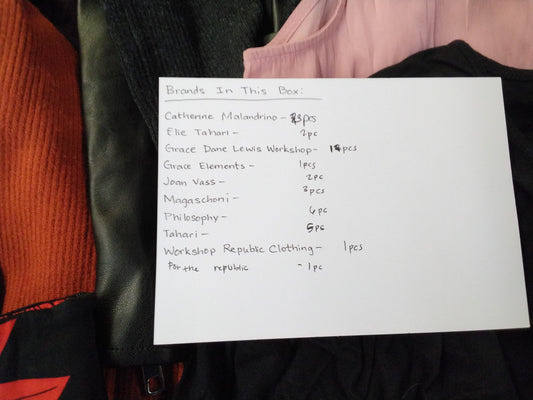 Brands In This Box:
Catherine Malandrino - 3pcs
Elie Tahari - 2pc
Grace Dane Lewis Workshop - pcs
Grace Elements - 1pcs
Joan Vass - 2pc
Magaschoni - 3pcs
Philosophy - 6pc
Tahari - 5pc
Workshop Republic Clothing - 1pcs
For the republic - 1pc